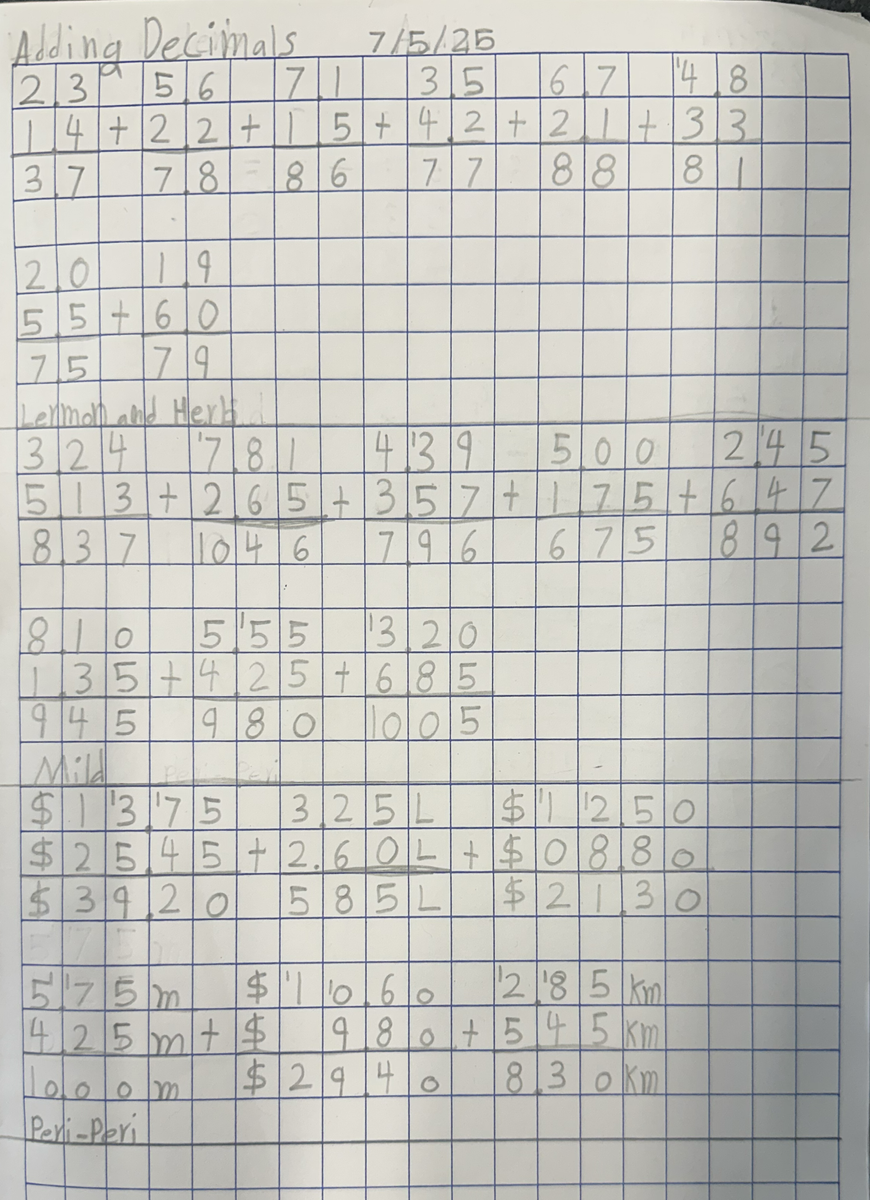 Adding Decimals 7/5/25
2.3 5.6 7.1 3.5 6.7 '4.8
1.4 + 2.2 + 1.5 + 4.2 + 2.1 + 3.3
3.7 7.8 8.6 7.7 8.8 8.1
2.0 1.9
5.5 + 6.0
7.5 7.9
Lermon and Herb
3.24 '7.81 4.'39 5.00 2.'45
5.13 + 2.65 + 3.57 + 1.75 + 6.47
8.37 10.46 7.96 6.75 8.92
8.10 5.'55 '3.20
1.35 + 4.25 + 6.85
9.45 9.80 10.05
Mild
$1'3.'75 3.25L $'1'2.50
$25.45 + 2.60L + $08.80
$39.20 5.85L $21.30
5.'75m $'1'0.60 '2.'85Km
4.25m + $ 9.80 + 5.45Km
10.00m $29.40 8.30Km
Peri-Peri